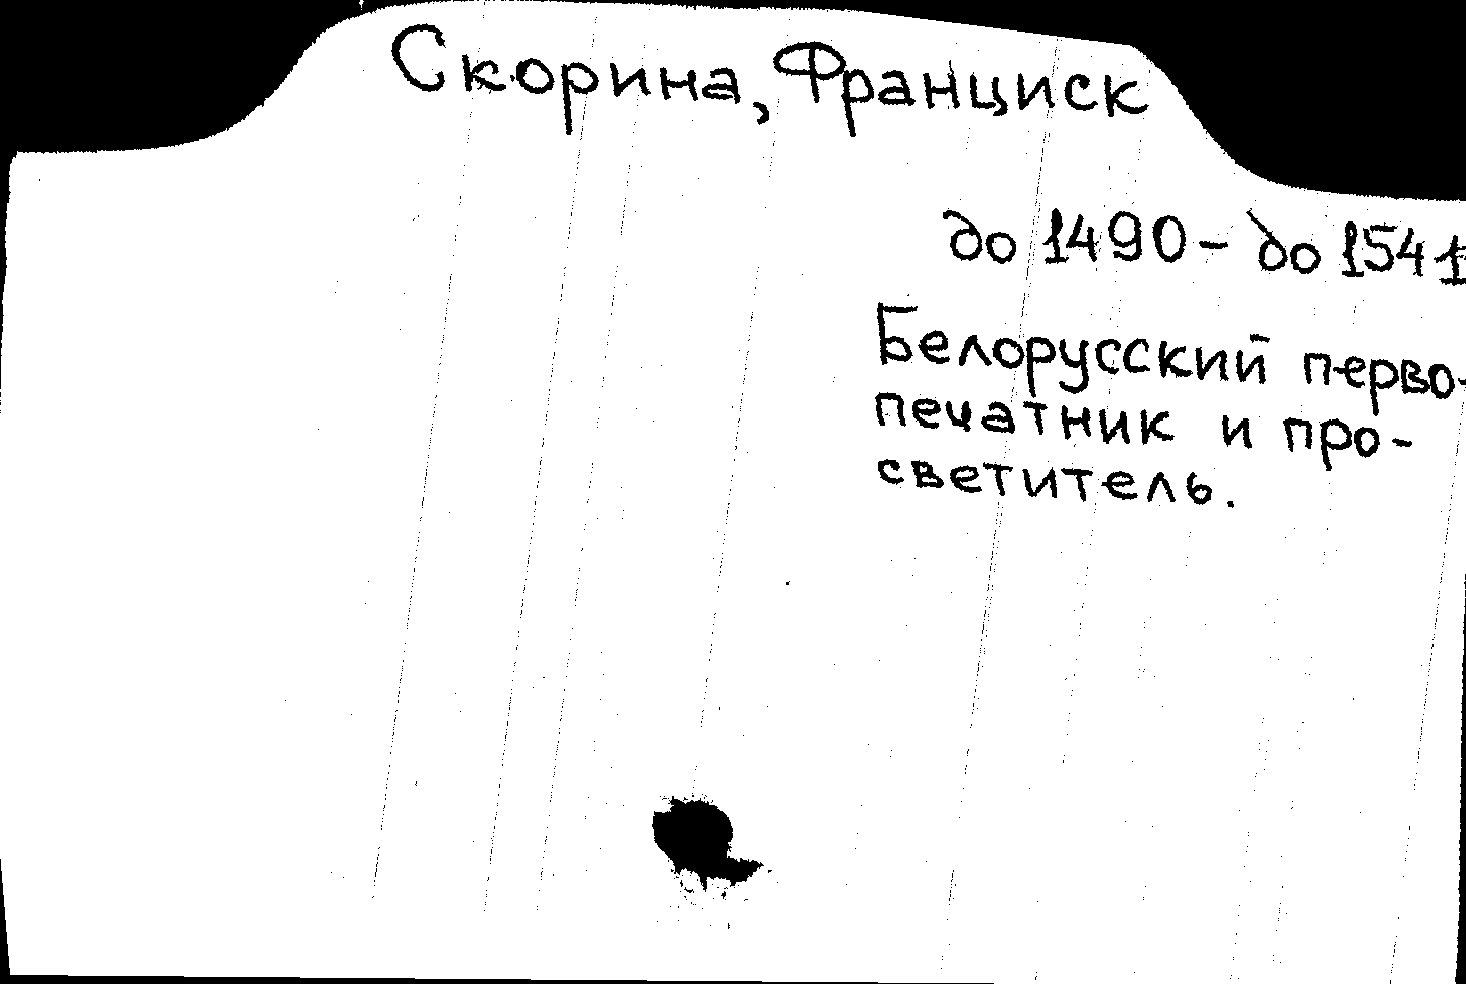 Скорина, Франциск
до 1490 - до 1541
Белорусский перво-
печатник и про-
светитель.